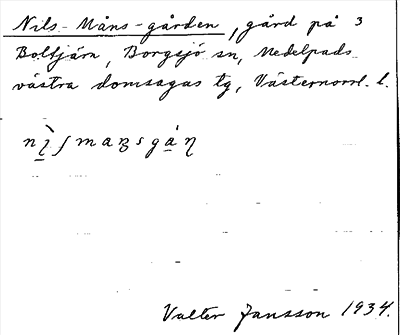 Nils-Måns-gården, gård på 3
Boltjärn, Borgsjö sn, Medelpads
västra domsagas tg, Västernorrl. l.
Valter Jansson 1934.